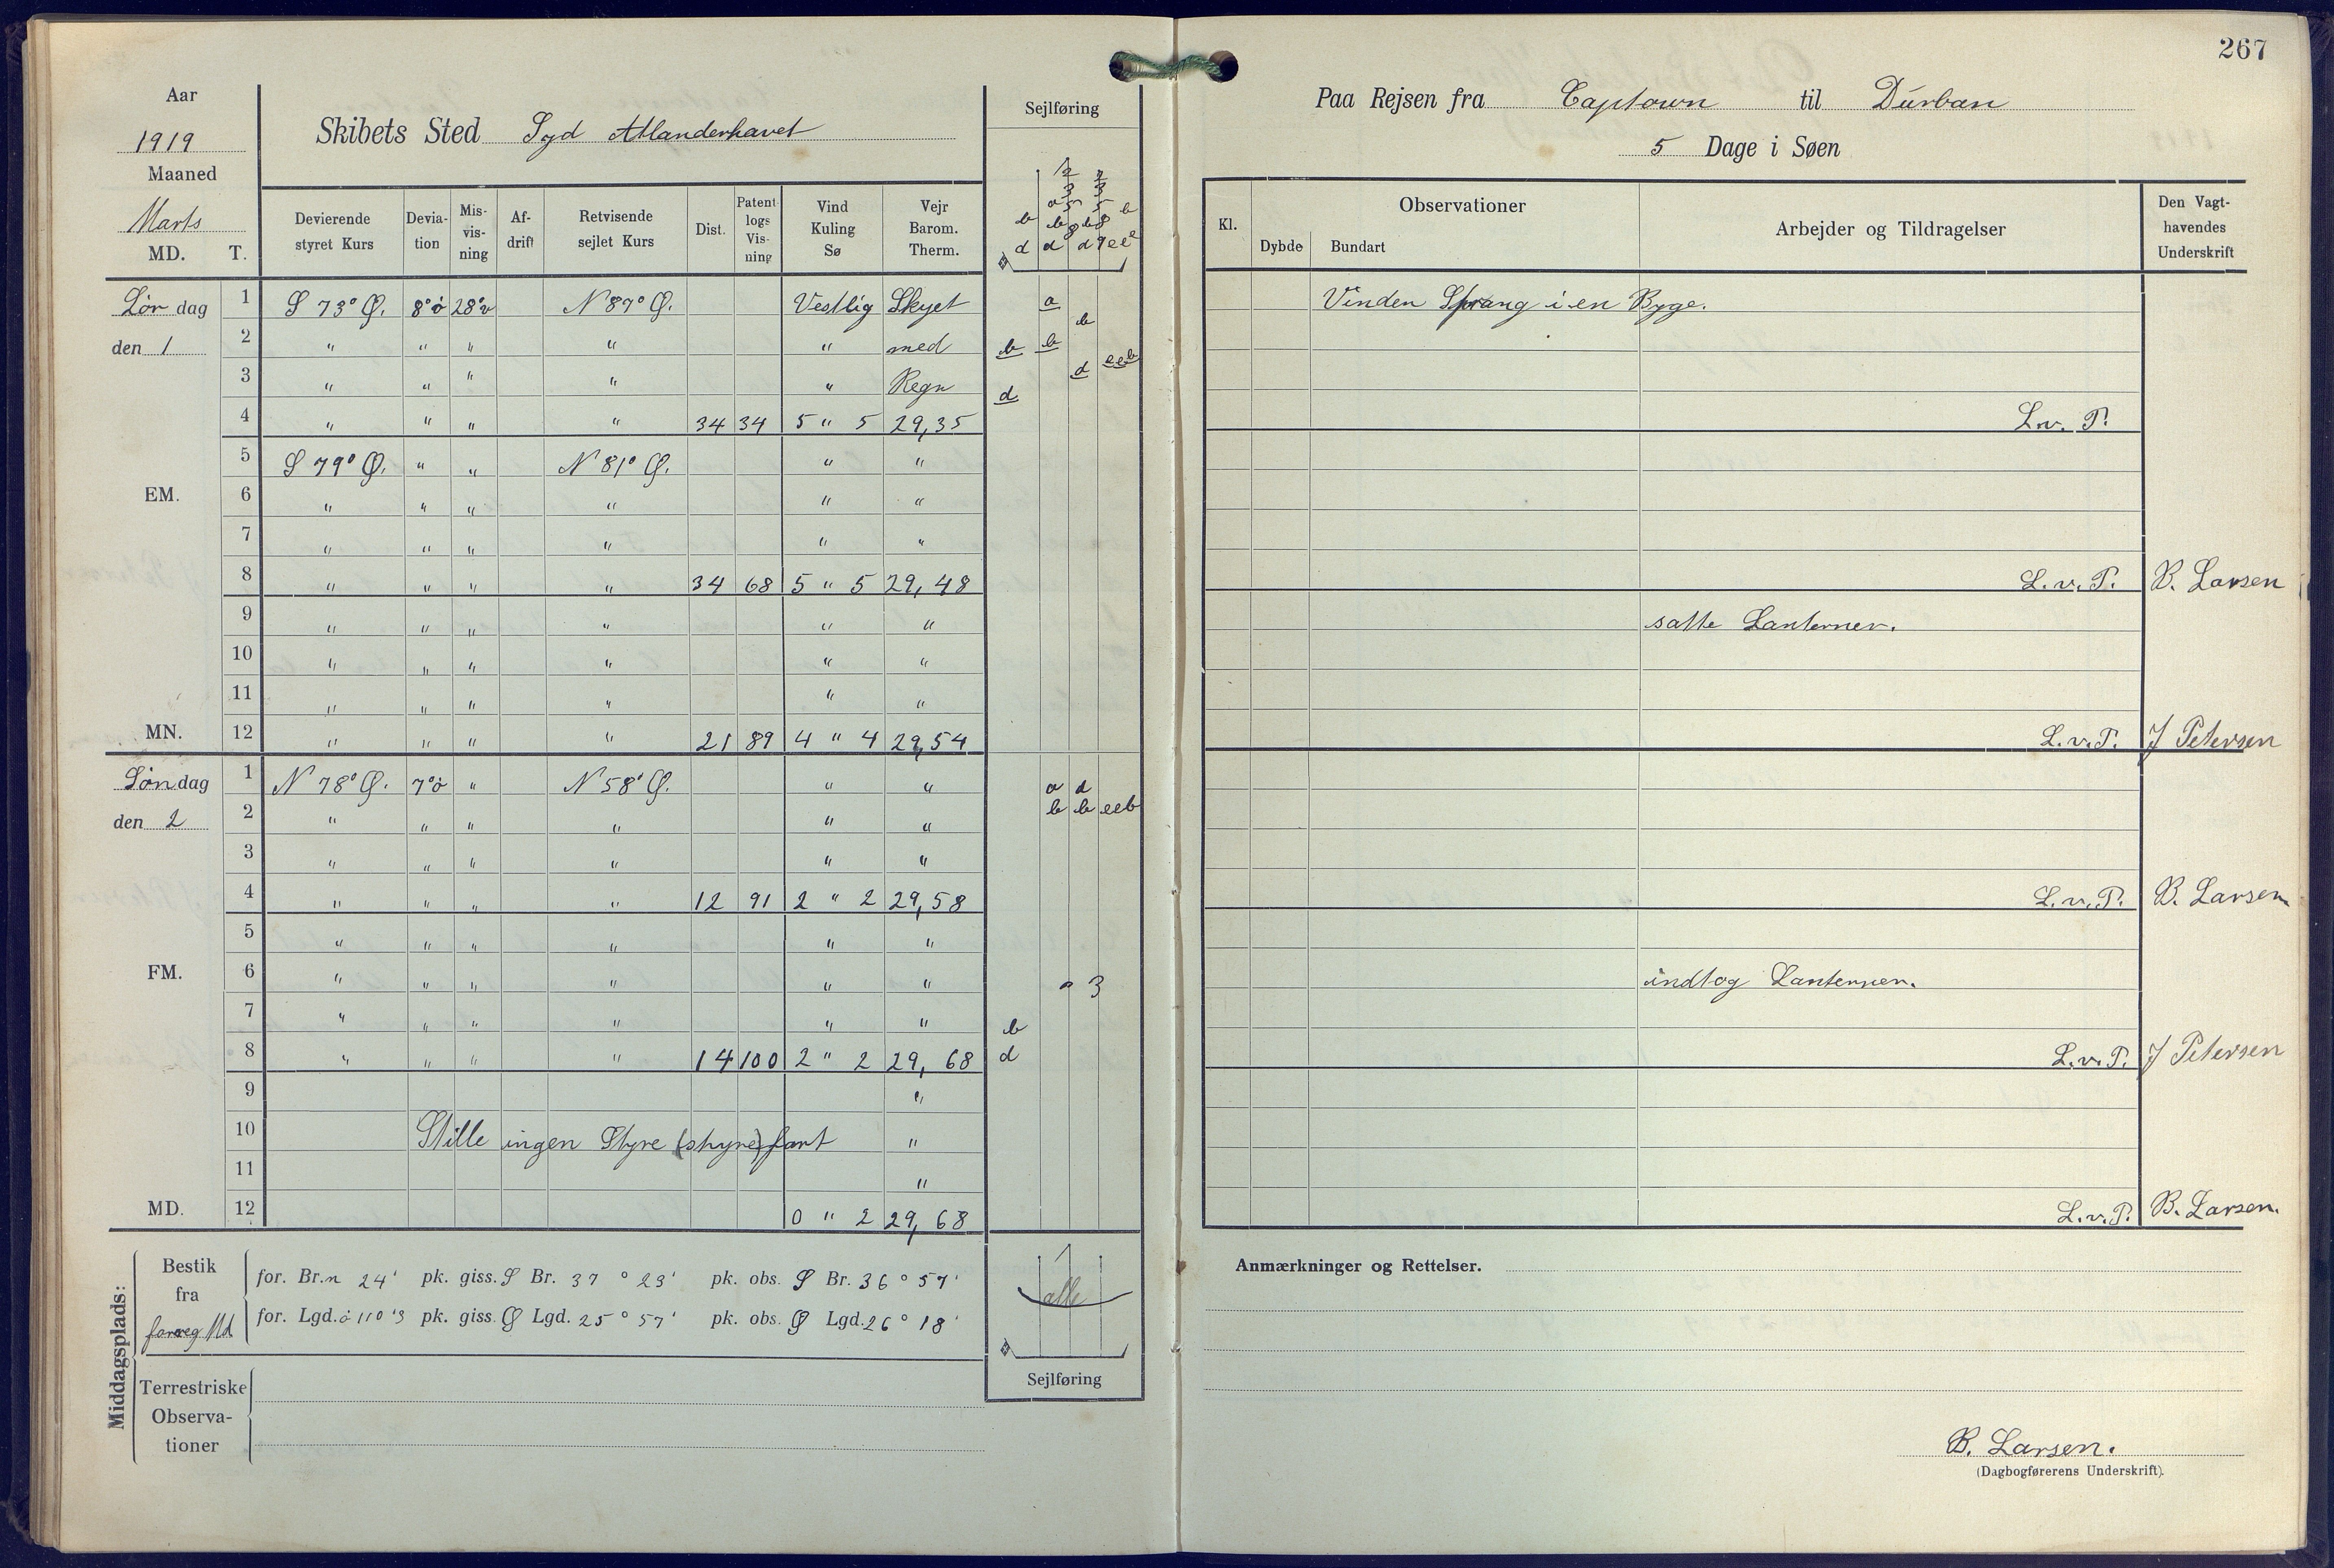 267
Aar
1919
Maaned
Marts
MD. T.
Skibets Sted Syd Atlanderhavet
Sejlføring
Paa Rejsen fra Captown til Durban
5 Dage i Søen
Devierende styret Kurs
Deviation
Misvisning
Afdrift
Retvisende sejlet Kurs
Dist.
Patent logs Visning
Vind Kuling Sø
Vejr Barom. Therm.
Kl.
Observationer
Dybde Bundart
Arbejder og Tildragelser
Den Vagthavendes Underskrift
Lør dag 1 S 73° Ø. 8°ö 28°v N 87° Ø. Vestlig Skyet a Vinden Sprang i en Byge.
den 1 2 " " " " " med b b b
3 " " " " " Regn d d eeb
4 " " " " 34 34 5 " 5 29,35 L.v. P.
5 S 79° Ø. " " N 81° Ø. " "
EM. 6 " " " " " "
7 " " " " " "
8 " " " " 34 68 5 " 5 29,48 L.v.P. B. Larsen
9 " " " " " " satte Lanterner.
10 " " " " " "
11 " " " " " "
MN. 12 " " " " 21 89 4 " 4 29,54 L.v.P. J Petersen
Søndag 1 N 78° Ø. 7°ö " N 58° Ø. " " a d
den 2 2 " " " " " " b b eeb
3 " " " " " "
4 " " " " 12 91 2 " 2 29,58 L.v.P. B. Larsen
5 " " " " " "
FM. 6 " " " " " " 3 indtog Lanterner.
7 " " " " " " b
8 " " " " 14 100 2 " 2 29,68 d L.v.P. J Petersen
9 "
10 Stille ingen Styre (styre) fart "
11 "
MD. 12 0 " 2 29,68 L.v.P. B. Larsen.
Middagsplads:
Bestik fra foreg Md
for. Br. n 24' pk. giss. S Br. 37 ° 23' pk. obs. S Br. 36 ° 57'
for. Lgd. ö 110'3 pk. giss. Ø Lgd. 25 ° 57' pk. obs. Ø Lgd. 26 ° 18'
alle
Sejlføring
Terrestriske Observationer
Anmærkninger og Rettelser.
B. Larsen.
(Dagbogførerens Underskrift).